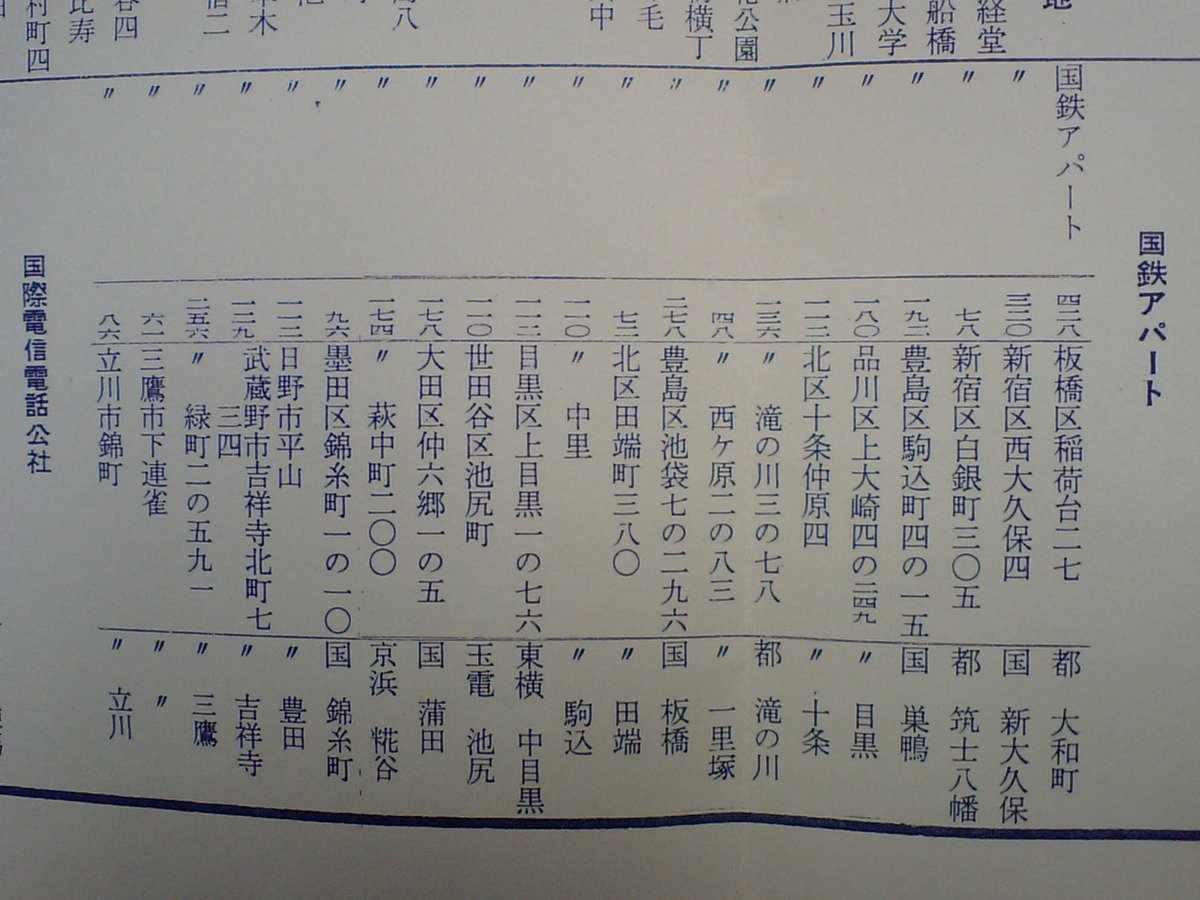 国鉄アパート
国鉄アパート 四二八 板橋区稲荷台二七 都 大和町
〃 三二〇 新宿区西大久保四 国 新大久保
〃 七八 新宿区白銀町三〇五 都 筑士八幡
〃 一九二 豊島区駒込町四の一五 国 巣鴨
〃 一八〇 品川区上大崎四の二四九 〃 目黒
〃 一一二 北区十条仲原四 〃 十条
〃 一三六 〃 滝の川三の七八 都 滝の川
〃 四八 〃 西ケ原二の八三 〃 一里塚
〃 二七八 豊島区池袋七の二九六 国 板橋
〃 七二 北区田端町三八〇 〃 田端
〃 一一〇 〃 中里 〃 駒込
〃 一一二 目黒区上目黒一の七六 東横 中目黒
〃 一一〇 世田谷区池尻町 玉電 池尻
〃 一七八 大田区仲六郷一の五 国 蒲田
〃 一七四 〃 萩中町二〇〇 京浜 糀谷
〃 九六 墨田区錦糸町一の一〇 国 錦糸町
〃 一一二 日野市平山 〃 豊田
〃 一二九 武蔵野市吉祥寺北町七
三四 〃 吉祥寺
〃 二五六 〃 緑町二の五九一 〃 三鷹
〃 六一 三鷹市下連雀 〃 〃
〃 八六 立川市錦町 〃 立川
国際電信電話公社
経堂
船橋
大学
玉川
公園
横丁
毛
中
八
木
二
谷四
比寿
村町四